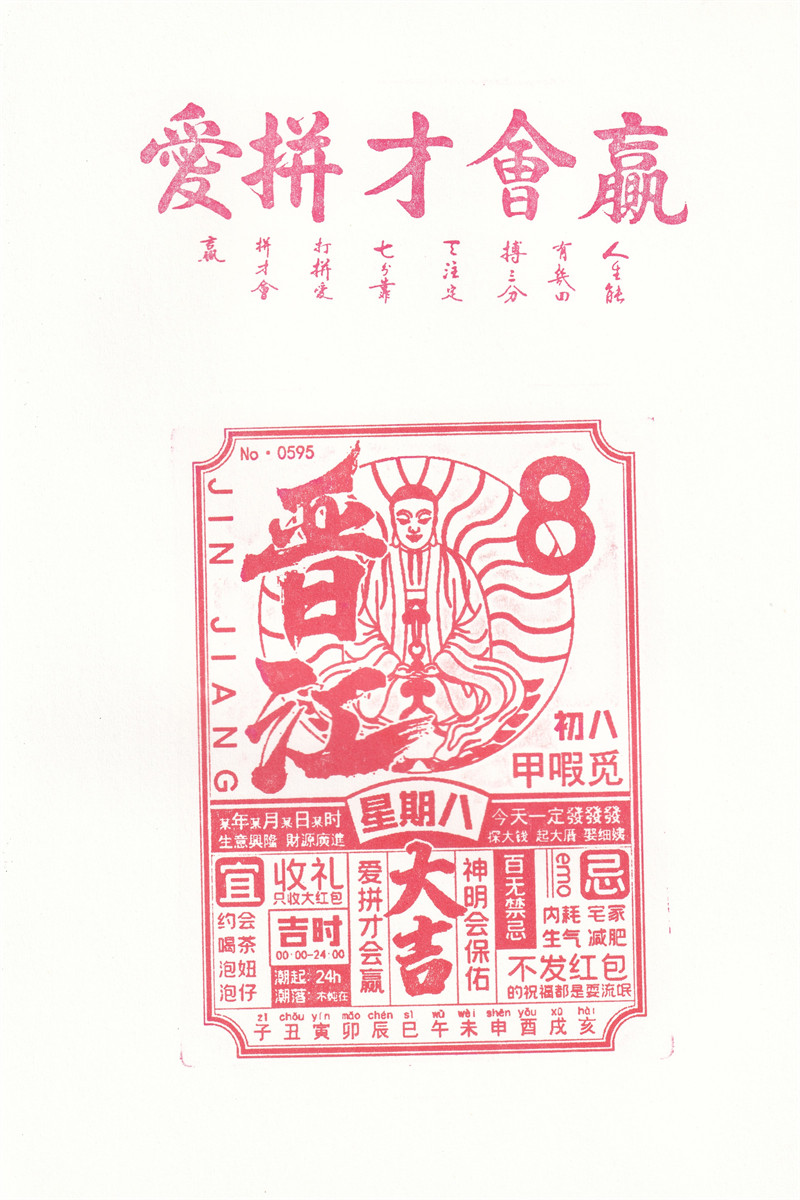 愛拼才會贏
人生能
有幾回
搏三分
天注定
七分靠
打拼愛
拼才會
贏
No·0595
JIN JIANG
晋江
8
初八
甲暇觅
某年某月某日某时
生意興隆 財源廣進
星期八
今天一定發發發
探大钱 起大厝 娶细姨
宜
收礼
只收大红包
约会
喝茶
泡妞
泡仔
吉时
00:00-24:00
潮起潮落
24h
不蚀在
爱拼才会赢
大吉
神明会保佑
百无禁忌
emo
忌
内耗 宅家
生气 减肥
不发红包
的祝福都是耍流氓
zǐ chǒu yín mǎo chén sì wǔ wèi shēn yǒu xū hài
子丑寅卯辰巳午未申酉戌亥